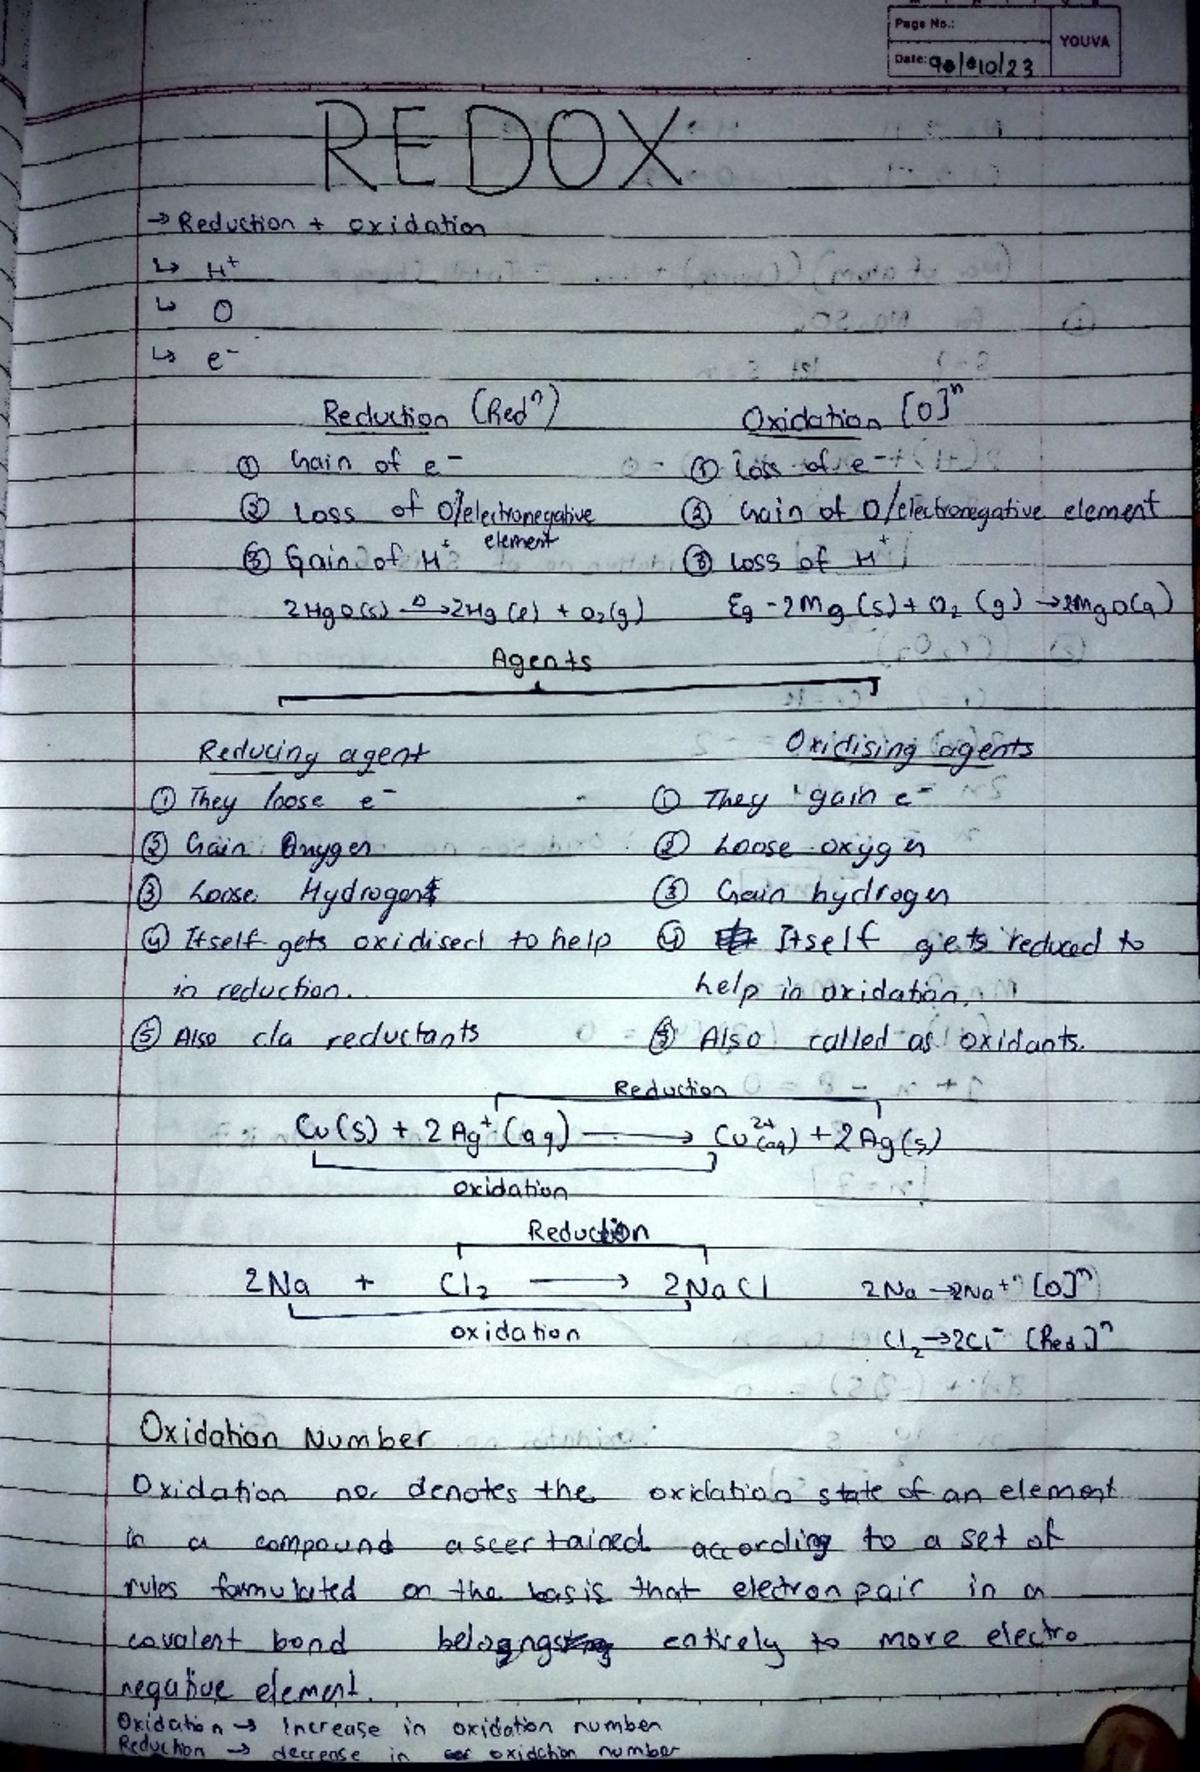 Page No.:
YOUVA
Date: 90/10/23
REDOX
→ Reduction + oxidation
↳ H⁺
↳ O
↳ e⁻
Reduction (Redⁿ)
Oxidation [O]ⁿ
① Gain of e⁻
① Loss of e⁻
② Loss of O/electronegative element
② Gain of O/electronegative element
③ Gain of H⁺
③ Loss of H⁺
2HgO(s) –Δ→ 2Hg(l) + O₂(g)
Eg - 2Mg (s) + O₂ (g) → 2MgO(s)
Agents
Reducing agent
Oxidising agents
① They loose e⁻
① They gain e⁻
② Gain Oxygen
② Loose oxygen
③ Loose Hydrogen
③ Gain hydrogen
④ Itself gets oxidised to help
in reduction.
④ Itself gets reduced to
help in oxidation.
⑤ Also c/a reductants
⑤ Also called as oxidants.
Reduction
Cu(s) + 2Ag⁺(aq) → Cu²⁺(aq) + 2Ag(s)
oxidation
Reduction
2Na + Cl₂ → 2NaCl
2Na → 2Na⁺ [O]ⁿ
oxidation
Cl₂ → 2Cl⁻ [Red]ⁿ
Oxidation Number
Oxidation no. denotes the oxidation state of an element
in a compound ascertained according to a set of
rules formulated on the basis that electron pair in a
covalent bond belongs entirely to more electro
negative element.
Oxidation → Increase in oxidation number
Reduction → decrease in oxidation number